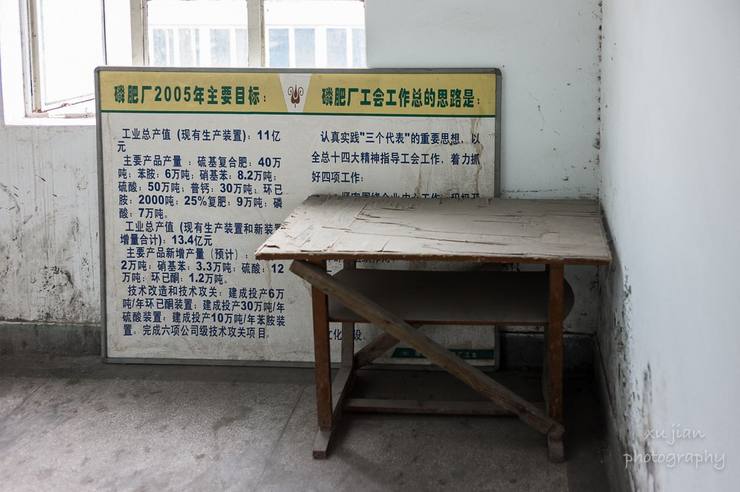 磷肥厂2005年主要目标：
工业总产值 (现有生产装置)：11亿
元
主要产品产量：硫基复合肥：40万
吨；苯胺：6万吨；硝基苯：8.2万吨；
硫酸：50万吨；普钙：30万吨；环己
胺：2000吨；25%复肥：9万吨；磷
酸：7万吨。
工业总产值 (现有生产装置和新装置
增量合计)：13.4亿元
主要产品新增产量 (预计)：
2万吨；硝基苯：3.3万吨；硫酸：12
万吨；环已酮：1.2万吨。
技术改造和技术攻关：建成投产6万
吨/年环已酮装置；建成投产30万吨/年
硫酸装置；建成投产10万吨/年苯胺装
置，完成六项公司级技术攻关项目。
磷肥厂工会工作总的思路是：
认真实践"三个代表"的重要思想，以
全总十四大精神指导工会工作，着力抓
好四项工作：
xu jian
photography